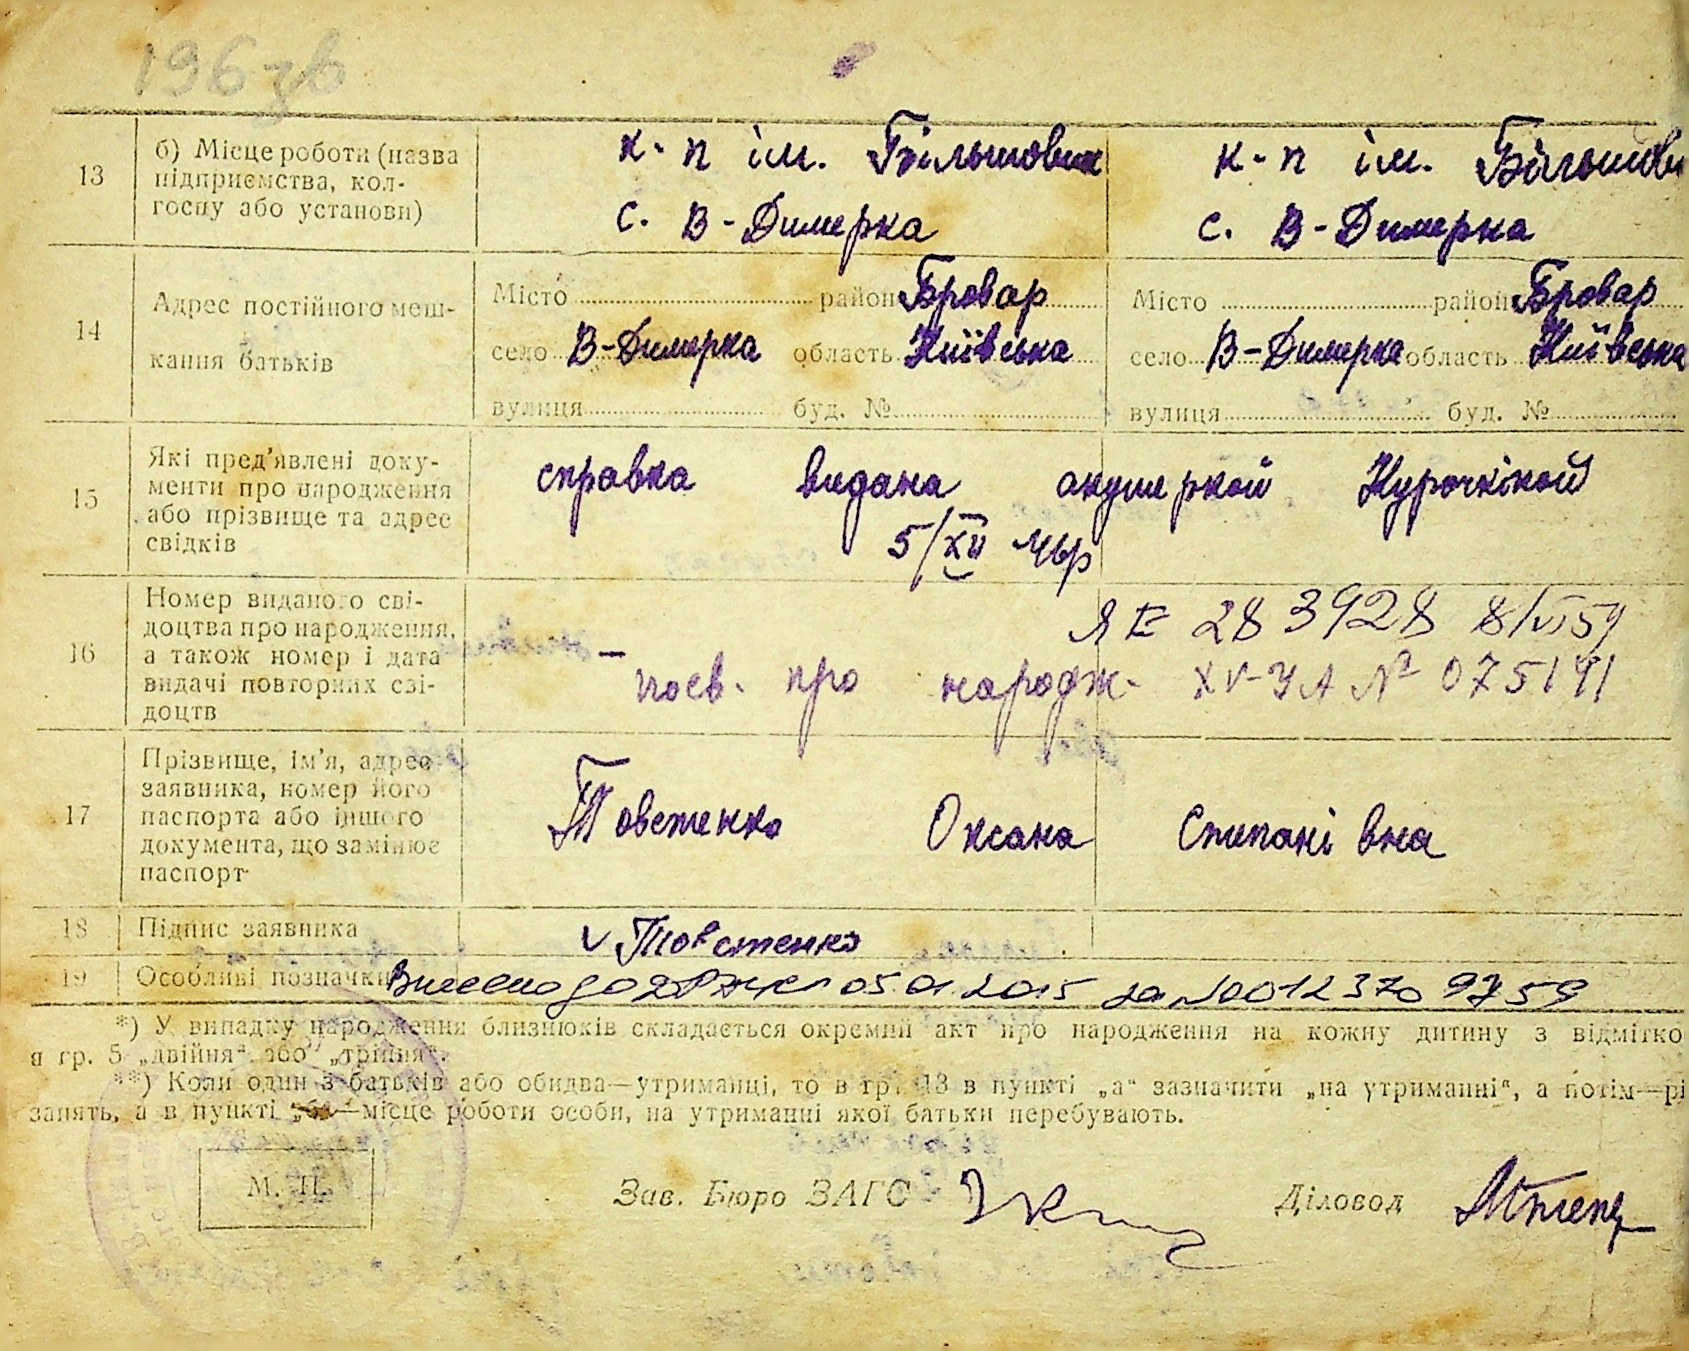 196зв
13
б) Місце роботи (назва
підприємства, кол-
госпу або установи)
к-п ім. Більшовик
с. В-Димерка
к-п ім. Більшови
с. В-Димерка
14
Адрес постійного меш-
кання батьків
Місто район Бровар
село В-Димерка область Київська
вулиця буд. №
Місто район Бровар
село В-Димерка область Київська
вулиця буд. №
15
Які пред'явлені доку-
менти про народження
або прізвище та адрес
свідків
справка видана акушеркой Курочкіной
5/XII 41р
16
Номер виданого сві-
доцтва про народження,
а також номер і дата
видачі повторних сві-
доцтв
ЯЕ 283928 8/VI 59
посв. про народж. XV-УА № 075191
17
Прізвище, ім'я, адрес
заявника, номер його
паспорта або іншого
документа, що замінює
паспорт
Товстенко Оксана Степанівна
18
Підпис заявника
Товстенко
19
Особливі позначки
Внесено до 05.01.2015 за №00123709759
*) У випадку народження близнюків складається окремий акт про народження на кожну дитину з відмітко
в гр. 5 „двійня" або „трійня".
**) Коли один з батьків або обидва—утриманці, то в гр. 13 в пункті „а" зазначити „на утриманні", а потім—рі
занять, а в пункті „б"—місце роботи особи, на утриманні якої батьки перебувають.
М. П.
Зав. Бюро ЗАГС
Діловод